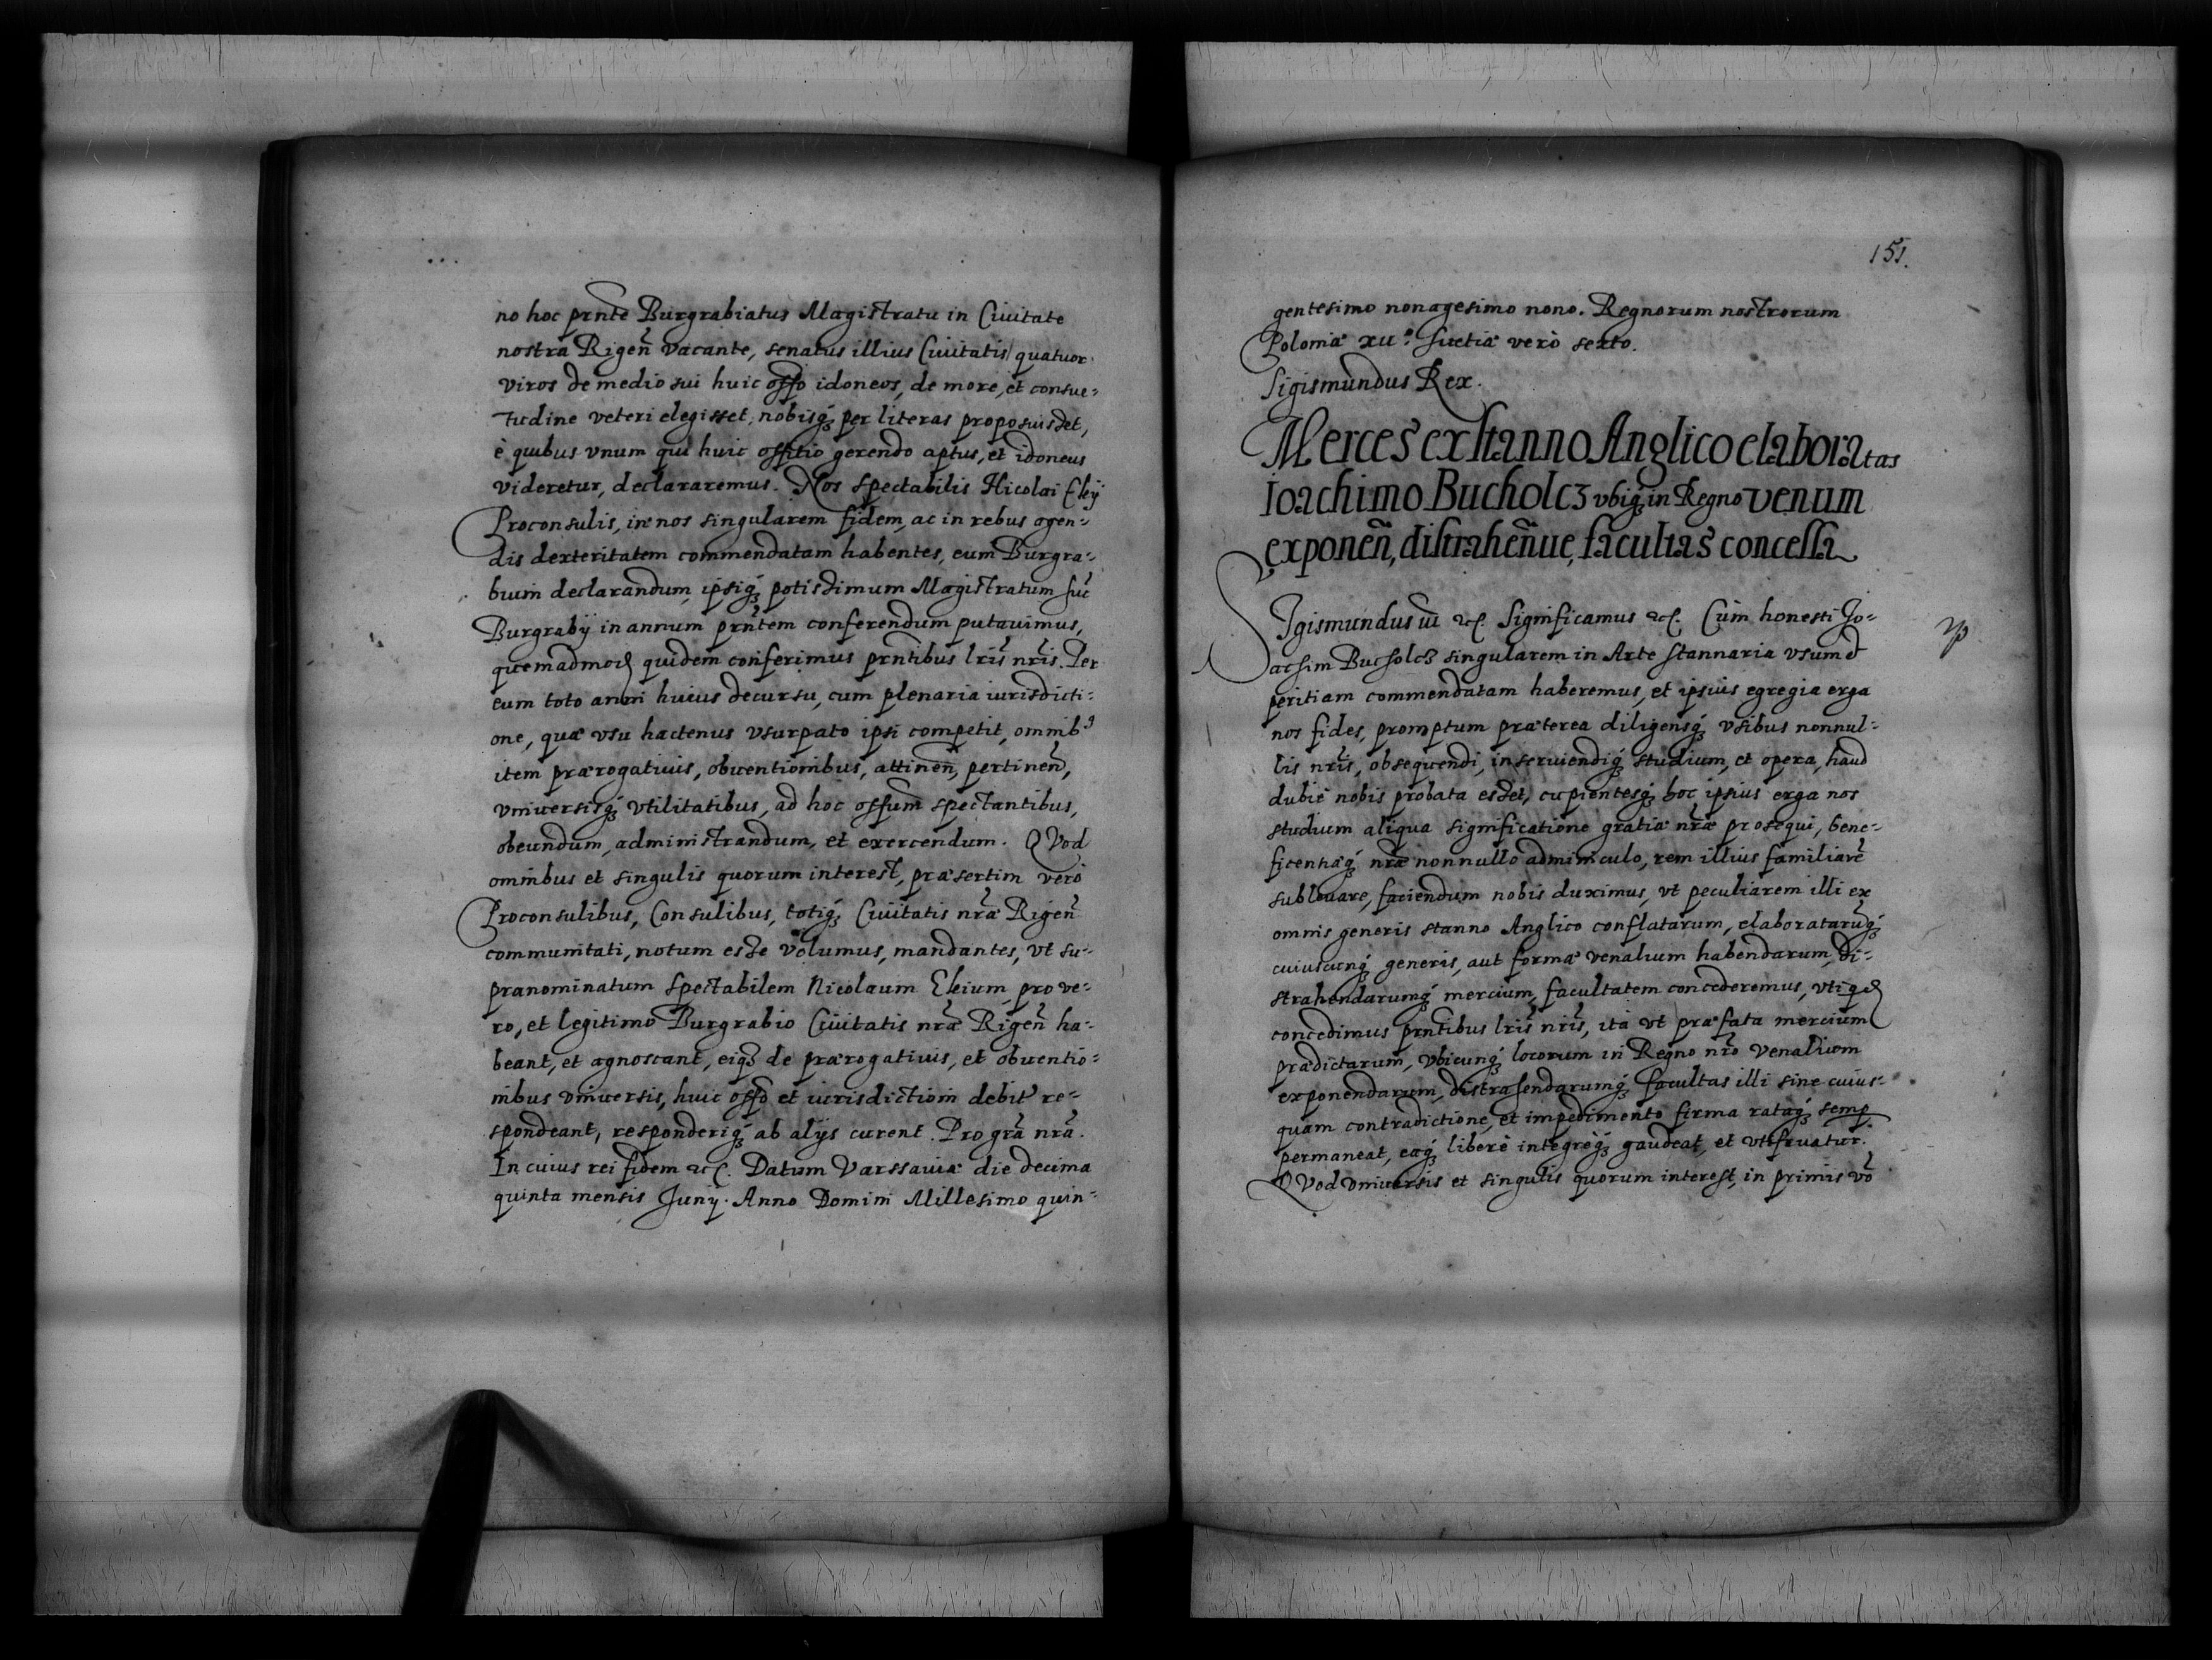 no hoc prnte Burgrabiatus Magistratu in Ciuitate
nostra Rigen̄ vacante, senatus illius Ciuitatis quatuor
viros de medio sui huic offo idoneos, de more, et consue-
tudine veteri elegisset, nobisq́ꝫ per literas proposuisset,
è quibus vnum qui huic offitio gerendo aptus, et idoneus
videretur, declararemus. Nos spectabilis Nicolai Ekij
Proconsulis, in nos singularem fidem, ac in rebus agen-
dis dexteritatem commendatam habentes, eum Burgra-
bium declarandum, ipsiq́ꝫ potissimum Magistratum huc
Burgrabij in annum prn̄tem conferendum putauimus,
quemadmod quidem conferimus prn̄tibus lrīs nrīs. Per
eum toto anni huius decursu, cum plenaria iurisdicti-
one, quæ vsu hactenus vsurpato ipsi competit, omnibꝰ
item prærogatiuis, obuentionibus, attinen̄, pertinen̄,
vniuersisq́ꝫ vtilitatibus, ad hoc offum spectantibus,
obeundum, administrandum, et exercendum. QVod
omnibus et singulis quorum interest, præsertim verò
Proconsulibus, Consulibus, totiq́ꝫ Ciuitatis nrǣ Rigen̄
communitati, notum esse volumus, mandantes, vt su-
pranominatum Spectabilem Nicolaum Ekium, pro ve-
ro, et legitimo Burgrabio Ciuitatis nrǣ Rigen̄ ha-
beant, et agnoscant, eiqꝫ de prærogatiuis, et obuentio-
nibus vniuersis, huic offo et iurisdictioni debit̄ re-
spondeant, responderiq́ꝫ ab alijs curent. Pro grā nrā.
In cuius rei fidem etc. Datum Varssauiæ die decima
quinta mensis Junij. Anno Domini Millesimo quin-
151.
gentesimo nonagesimo nono. Regnorum nostrorum
Poloniæ xiiº. Suetiæ verò sexto.
Sigismundus Rex.
Merces ex stanno Anglico elaboratas
Ioachimo Bucholcz vbiq́ꝫ in Regno venum
exponen̄, distrahen̄ue, facultas concessa
SIgismundus iii etc. Significamus etc. Cùm honesti Jo-
achim Bucholcz singularem in Arte stannaria vsum et
peritiam commendatam haberemus, et ipsius egregia erga
nos fides, promptum præterea diligensq́ꝫ vsibus nonnul-
lis nrīs, obsequendi, inseruiendiq́ꝫ studium, et opera, haud
dubiè nobis probata esset, cupientesq́ꝫ hoc ipsius erga nos
studium aliqua significatione gratiæ nrǣ prosequi, bene-
ficentiæq́ꝫ nrǣ nonnullo adminiculo, rem illius familiarē
subleuare, faciendum nobis duximus, vt peculiarem illi ex
omnis generis stanno Anglico conflatarum, elaboratarūq́ꝫ
cuiuscunq́ꝫ generis, aut formæ venalium habendarum, di-
strahendarumq́ꝫ mercium, facultatem concederemus, vti qd
concedimus prn̄tibus lrīs nrīs, ità vt præfata mercium
prædictarum, vbicunq́ꝫ locorum in Regno nrō venalium
exponendarum, distrahendarumq́ꝫ facultas illi sine cuius-
quam contradictione, et impedimento firma rataq́ꝫ semp
permaneat, eaq́ꝫ liberè integreq́ꝫ gaudeat, et vtifruatur.
QVod vniuersis et singulis quorum interest, in primis vō